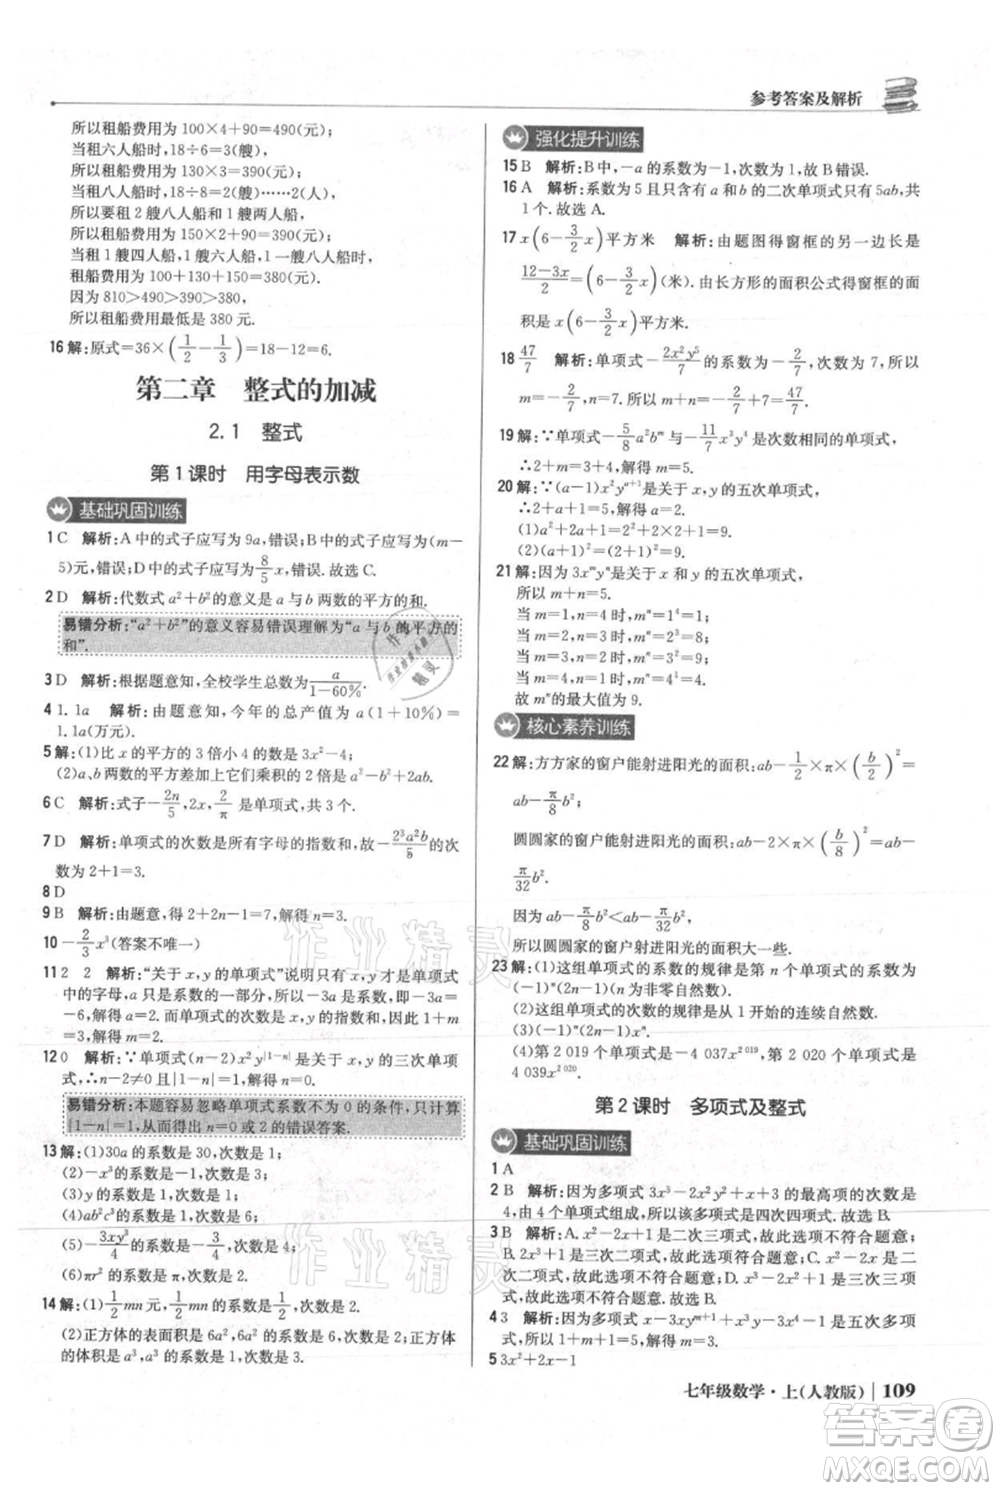 参考答案及解析
所以租船费用为 100×4+90=490(元);
当租六人船时,18÷6=3(艘),
所以租船费用为 130×3=390(元);
当租八人船时,18÷8=2(艘)……2(人),
所以要租 2 艘八人船和 1 艘两人船,
所以租船费用为 150×2+90=390(元);
当租 1 艘四人船,1 艘六人船,1 艘八人船时,
租船费用为 100+130+150=380(元).
因为 810>490>390>380,
所以租船费用最低是 380 元.
16 解:原式=36×(1/2-1/3)=18-12=6.
第二章 整式的加减
2.1 整式
第 1 课时 用字母表示数
基础巩固训练
1 C 解析:A 中的式子应写为 9a,错误;B 中的式子应写为(m-
5)元,错误;D 中的式子应写为 8/5 x,错误.故选 C.
2 D 解析:代数式 a²+b² 的意义是 a 与 b 两数的平方的和.
易错分析:“a²+b²”的意义容易错误理解为“a 与 b 的平方的
和”.
3 D 解析:根据题意知,全校学生总数为 a/(1-60%).
4 1.1a 解析:由题意知,今年的总产值为 a(1+10%)=
1.1a(万元).
5 解:(1)比 x 的平方的 3 倍小 4 的数是 3x²-4;
(2)a、b 两数的平方差加上它们乘积的 2 倍是 a²-b²+2ab.
6 C 解析:式子-2n/5,2x,2/π 是单项式,共 3 个.
7 D 解析:单项式的次数是所有字母的指数和,故-2³a²b/5 的次
数为 2+1=3.
8 D
9 B 解析:由题意,得 2+2n-1=7,解得 n=3.
10 -2/3 x³(答案不唯一)
11 2 2 解析:“关于 x,y 的单项式”说明只有 x,y 是单项式
中的字母,a 应是系数的一部分,所以系数是-3a,即-3a=
-6,解得 a=2.而单项式的次数是所有字母的指数和,即 1+
m=3,解得 m=2.
12 0 解析:∵单项式(n-2)x²y^|1-n| 是关于 x,y 的三次单项
式,∴n-2≠0 且|1-n|=1,解得 n=0.
易错分析:本题容易忽略单项式系数不为 0 的条件,只计算
|1-n|=1,得出 n=0 或 2 的错误答案.
13 解:(1)30a 的系数是 30,次数是 1;
(2)-x³ 的系数是-1,次数是 3;
(3)y 的系数是 1,次数是 1;
(4)ab²c³ 的系数是 1,次数是 6;
(5)-3xy³/4 的系数是-3/4,次数是 4;
(6)πr² 的系数是 π,次数是 2.
14 解:(1)1/2 mn 元,1/2 mn 的系数是 1/2,次数是 2;
(2)正方体的表面积为 6a²,6a² 的系数是 6,次数是 2;正方体
的体积是 a³,a³ 的系数是 1,次数是 3.
强化提升训练
15 B 解析:B 中,-a 的系数为-1,次数为 1,故 B 错误.
16 A 解析:系数为 5 且只含有 a 和 b 的二次单项式只有 5ab,共
1 个.故选 A.
17 x(6-3/2 x)平方米 解析:由题图得窗框的另一边长是
(12-3x)/2=(6-3/2 x)(米).由长方形的面积公式得窗框的面
积是 x(6-3/2 x)平方米.
18 47/7 解析:单项式-2x²y⁵/7 的系数为-2/7,次数为 7,所以
m=-2/7,n=7.所以 m+n=-2/7+7=47/7.
19 解:∵单项式-5/8 a²b^m 与-11/7 x³y⁴ 是次数相同的单项式,
∴2+m=3+4,解得 m=5.
20 解:∵(a-1)x²y^(a+1) 是关于 x,y 的五次单项式,
∴2+a+1=5,解得 a=2.
(1)a²+2a+1=2²+2×2+1=9.
(2)(a+1)²=(2+1)²=9.
21 解:因为 3x^m y^n 是关于 x 和 y 的五次单项式,
所以 m+n=5.
当 m=1,n=4 时,m^n=1⁴=1;
当 m=2,n=3 时,m^n=2³=8;
当 m=3,n=2 时,m^n=3²=9;
当 m=4,n=1 时,m^n=4¹=4.
故 m^n 的最大值为 9.
核心素养训练
22 解:方方家的窗户能射进阳光的面积:ab-1/2×π×(b/2)²=
ab-π/8 b².
圆圆家的窗户能射进阳光的面积:ab-2×π×(b/8)²=ab-
π/32 b².
因为 ab-π/8 b²<ab-π/32 b²,
所以圆圆家的窗户射进阳光的面积大一些.
23 解:(1)这组单项式的系数的规律是第 n 个单项式的系数为
(-1)^n(2n-1)(n 为非零自然数).
(2)这组单项式的次数的规律是从 1 开始的连续自然数.
(3)(-1)^n(2n-1)x^n.
(4)第 2 019 个单项式是-4 037x^2 019,第 2 020 个单项式是
4 039x^2 020.
第 2 课时 多项式及整式
基础巩固训练
1 A
2 B 解析:因为多项式 3x³-2x²y²+x+3y 的最高项的次数是 4,
由 4 个单项式组成,所以这个多项式是四次四项式.故选 B.
3 B 解析:A.x²-2x+1 是二次三项式,故此选项不符合题意;
B.3x³+2x+1 是三次三项式,故此选项符合题意;C.x²-2 是
二次二项式,故此选项不符合题意;D.x³+2x²-3x+1 是三次
四项式,故此选项不符合题意.故选 B.
4 3 解析:因为多项式 x-3xy^(m+1)+x³y-3x⁴-1 是五次多项
式,所以 1+m+1=5,解得 m=3.
5 3x²+2x-1
七年级数学·上(人教版) 109
作业精灵
作业精灵
答案圈
MXQE.COM